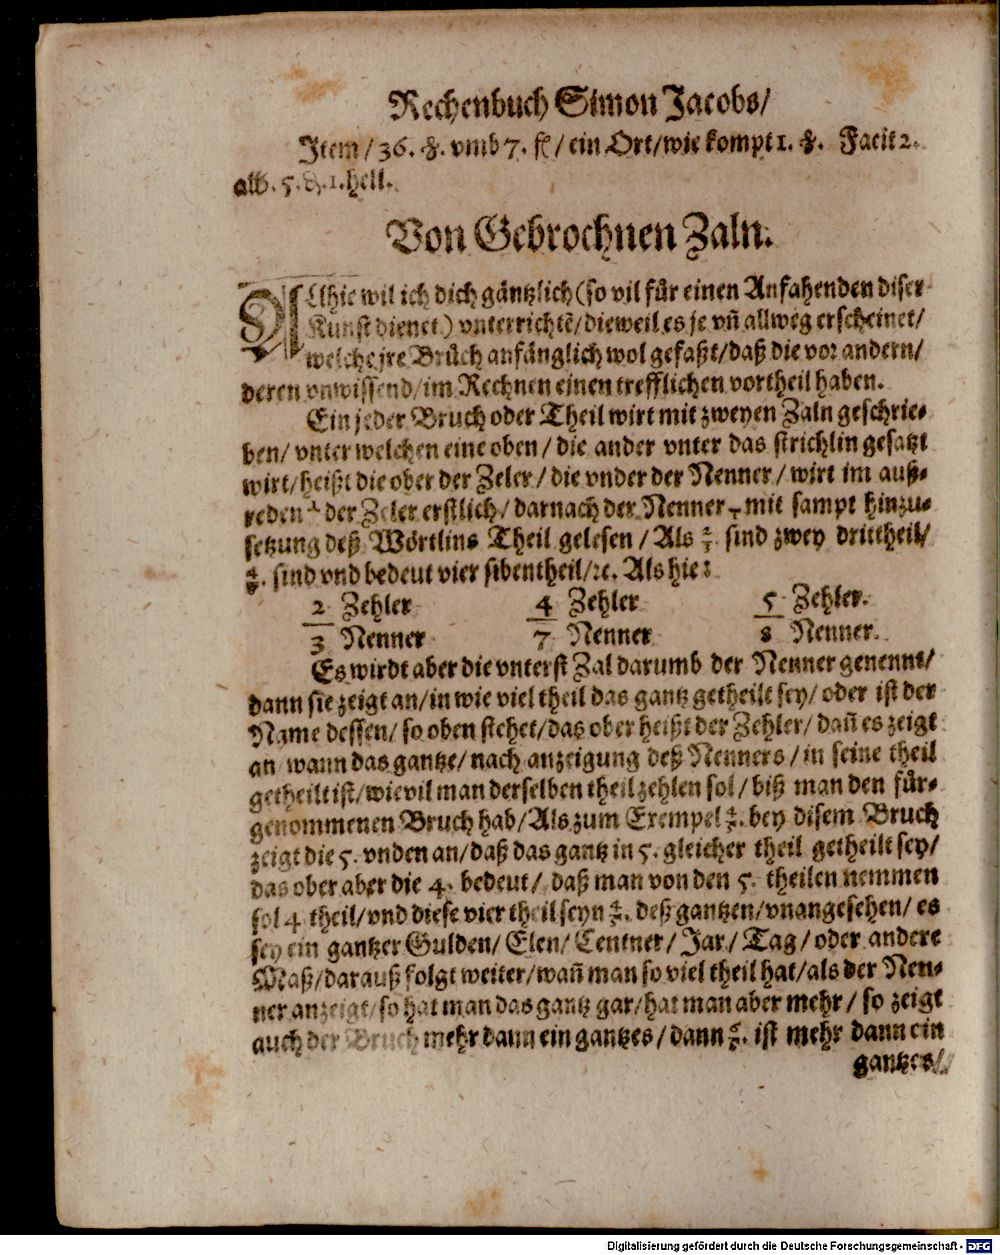 Rechenbuch Simon Jacobs/
Item/36. ℔. vmb 7. fl/ein Ort/wie kompt 1. ℔. Facit 2.
alb. 5. ₰. 1. hell.
Von Gebrochnen Zaln.
Allhie wil ich dich gäntzlich (so vil für einen Anfahenden diser
Kunst dienet) vnterrichtẽ/dieweil es je vñ allweg erscheinet/
welche jre Brüch anfänglich wol gefaßt/daß die vor andern/
deren vnwissend/im Rechnen einen trefflichen vortheil haben.
Ein jeder Bruch oder Theil wirt mit zweyen Zaln geschrie⸗
ben/ vnter welchen eine oben/ die ander vnter das strichlin gesatzt
wirt/heißt die ober der Zeler/ die vnder der Nenner/ wirt im auß⸗
reden der Zeler erstlich/ darnach der Nenner, mit sampt hinzu⸗
setzung deß Wörtlins Theil gelesen/ Als 2/3 sind zwey drittheil/
4/7. sind vnd bedeut vier sibentheil/ꝛc. Als hie:
2 Zehler 4 Zehler 5 Zehler.
3 Nenner 7 Nenner 8 Nenner.
Es wirdt aber die vnterst Zal darumb der Nenner genennt/
dann sie zeigt an/in wie viel theil das gantz getheilt sey/ oder ist der
Name dessen/ so oben stehet/das ober heißt der Zehler/ dañ es zeigt
an wann das gantze/ nach anzeigung deß Nenners/ in seine theil
getheilt ist/wie vil man derselben theil zehlen sol/ biß man den für⸗
genommenen Bruch hab/Als zum Exempel 4/5. bey disem Bruch
zeigt die 5. vnden an/daß das gantz in 5. gleicher theil getheilt sey/
das ober aber die 4. bedeut/ daß man von den 5. theilen nemmen
sol 4 theil/vnd diese vier theil seyn 4/5. deß gantzen/vnangesehen/ es
sey ein gantzer Gulden/ Elen/ Centner/ Jar/ Tag/ oder andere
Maß/darauß folgt weiter/wañ man so viel theil hat/als der Nen⸗
ner anzeigt/so hat man das gantz gar/hat man aber mehr/ so zeigt
auch der Bruch mehr dann ein gantzes/ dann ist mehr dann ein
gantzes/
Digitalisierung gefördert durch die Deutsche Forschungsgemeinschaft - DFG